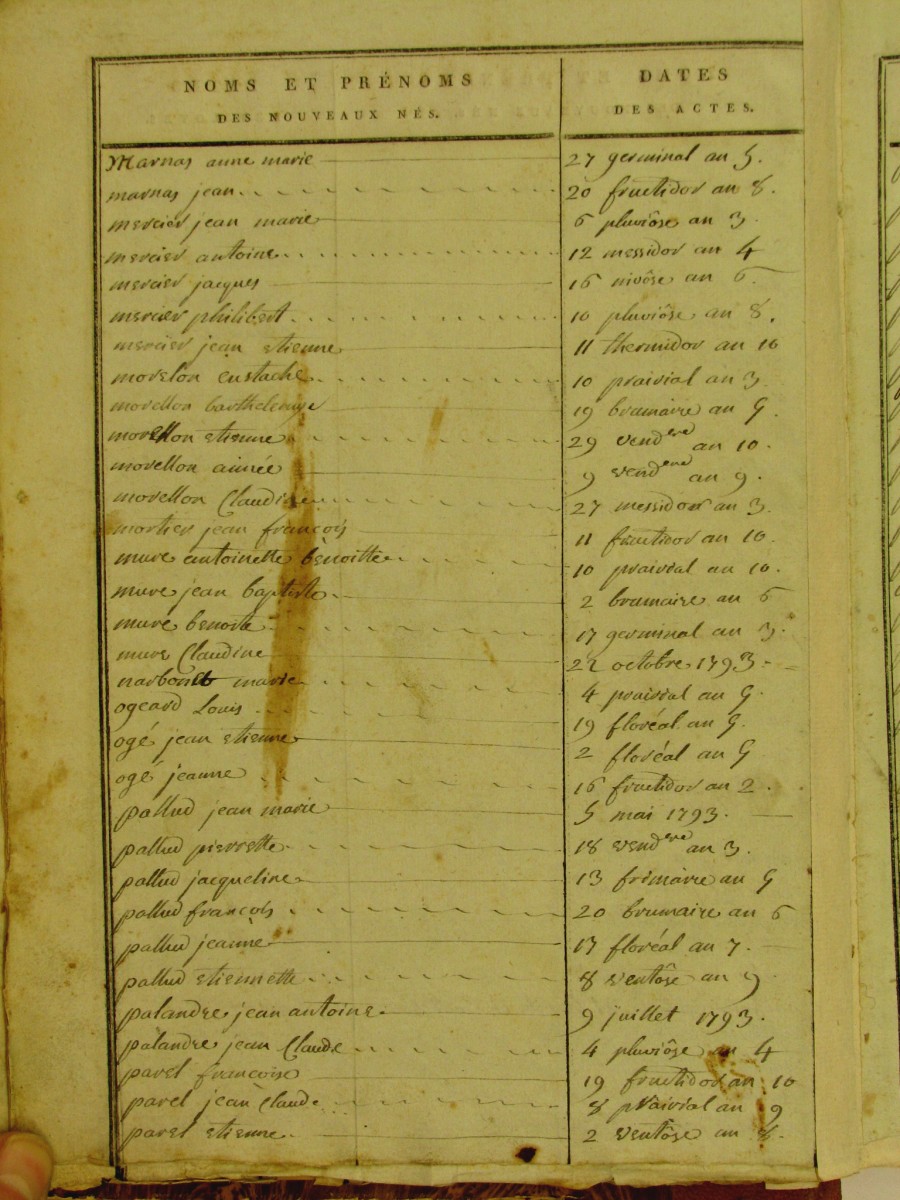 NOMS ET PRÉNOMS DES NOUVEAUX NÉS. DATES DES ACTES.
Marnas anne marie 27 germinal an 5.
marnas jean 20 fructidor an 8.
mercier jean marie 6 pluviôse an 3.
mercier antoine 12 messidor an 4
mercier jacques 16 nivôse an 6
mercier philibert 10 pluviôse an 8.
mercier jean etienne 11 thermidor an 10
morelon eustache 10 prairial an 3
morellon barthelemye 19 brumaire an 5.
morellon etienne 29 vendere an 10.
morellon aimée 9 vendere an 9.
morellon Claudine 27 messidor an 3.
mortier jean françois 11 fructidor an 10.
mure antoinette bènoitte 10 prairial an 10.
mure jean baptiste 2 brumaire an 6
mure benoite 17 germinal an 3.
mure Claudine 22 octobre 1793.
narbonet marie 4 prairial an 5.
ogeard Louis 19 floréal an 5.
ogé jean etienne 2 floréal an 5
ogé jeanne 16 fructidor an 2.
pallud jean marie 5 mai 1793.
pallud pierrette 18 vendere an 3.
pallud jacqueline 13 frimaire an 5
pallud françois 20 brumaire an 6
pallud jeanne 17 floréal an 7.
pallud etiennette 8 ventôse an 9
palandre jean antoine 9 juillet 1793.
palandre jean Claude 4 pluviôse an 4
parel françoise 19 fructidor an 10
parel jean Claude 8 prairial an 9
parel etienne 2 ventôse an 8.